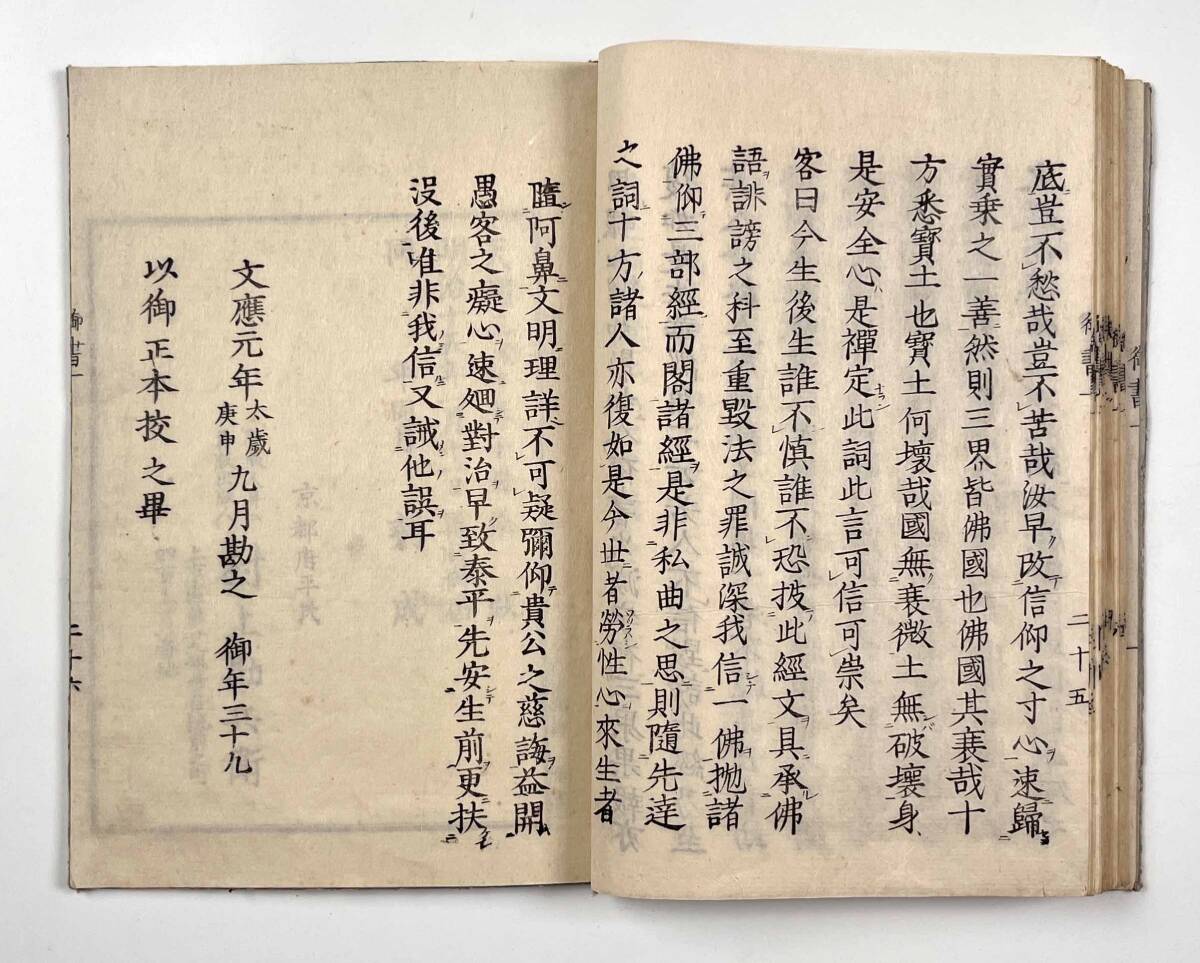 底豈不愁哉豈不苦哉汝早改信仰之寸心速歸
實乗之一善然則三界皆佛國也佛國其衰哉十
方悉寶土也寶土何壞哉國無衰微土無破壞身
是安全心是禪定此詞此言可信可崇矣
客曰今生後生誰不慎誰不恐披此經文具承佛
語誹謗之科至重毀法之罪誠深我信一佛抛諸
佛仰三部經而閣諸經是非私曲之思則隨先達
之詞十方諸人亦復如是今世者勞性心來生者
御書一
二十五
墮阿鼻文明理詳不可疑彌仰貴公之慈誨益開
愚客之癡心速廻對治早致泰平先安生前更扶
没後唯非我信又誡他誤耳
文應元年太歳庚申九月勘之 御年三十九
以御正本挍之畢
御書一
二十六